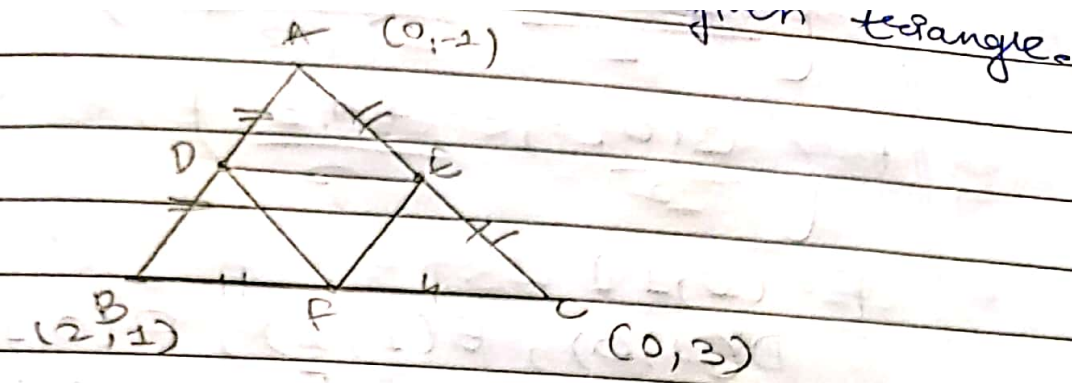 given triangle.
A (0,-1)
D E
B F C
(2,1) (0,3)